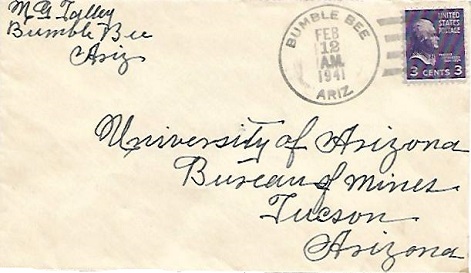 M G Talley
Bumble Bee
Ariz
BUMBLE BEE
FEB
12
A.M.
1941
ARIZ
UNITED
STATES
POSTAGE
3 CENTS 3
University of Arizona
Bureau of Mines
Tucson
Arizona